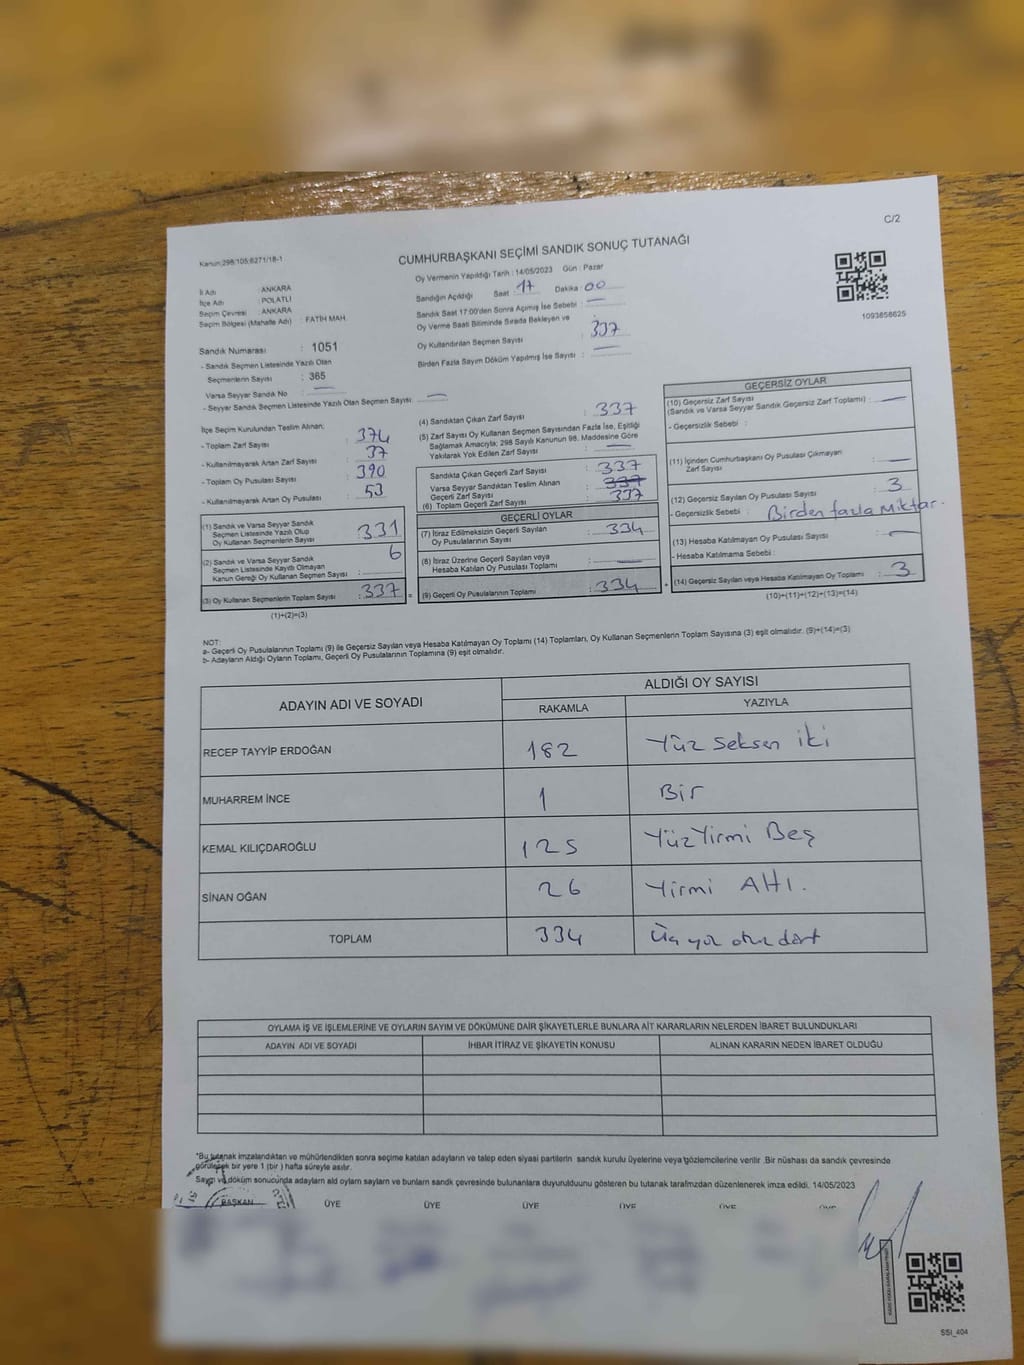 C/2
Kanun:298/105;6271/18-1
CUMHURBAŞKANI SEÇİMİ SANDIK SONUÇ TUTANAĞI
İl Adı : ANKARA
İlçe Adı : POLATLI
Seçim Çevresi : ANKARA
Seçim Bölgesi (Mahalle Adı) : FATİH MAH.
Sandık Numarası : 1051
- Sandık Seçmen Listesinde Yazılı Olan
Seçmenlerin Sayısı : 365
Varsa Seyyar Sandık No : —
- Seyyar Sandık Seçmen Listesinde Yazılı Olan Seçmen Sayısı : —
Oy Vermenin Yapıldığı Tarih : 14/05/2023 Gün : Pazar
Sandığın Açıldığı Saat : 17 Dakika : 00
Sandık Saat 17:00'den Sonra Açımış İse Sebebi : —
Oy Verme Saati Bitiminde Sırada Bekleyen ve
Oy Kullandırılan Seçmen Sayısı : 337
Birden Fazla Sayım Döküm Yapılmış İse Sayısı : —
1093658625
İlçe Seçim Kurulundan Teslim Alınan;
- Toplam Zarf Sayısı : 374
- Kullanılmayarak Artan Zarf Sayısı : 37
- Toplam Oy Pusulası Sayısı : 390
- Kullanılmayarak Artan Oy Pusulası : 53
(1) Sandık ve Varsa Seyyar Sandık
Seçmen Listesinde Yazılı Olup
Oy Kullanan Seçmenlerin Sayısı : 331
(2) Sandık ve Varsa Seyyar Sandık
Seçmen Listesinde Kayıtlı Olmayan
Kanun Gereği Oy Kullanan Seçmen Sayısı : 6
(3) Oy Kullanan Seçmenlerin Toplam Sayısı : 337 =
(1)+(2)=(3)
(4) Sandıktan Çıkan Zarf Sayısı : 337
(5) Zarf Sayısı Oy Kullanan Seçmen Sayısından Fazla İse, Eşitliği
Sağlamak Amacıyla; 298 Sayılı Kanunun 98. Maddesine Göre
Yakılarak Yok Edilen Zarf Sayısı : —
Sandıkta Çıkan Geçerli Zarf Sayısı : 337
Varsa Seyyar Sandıktan Teslim Alınan
Geçerli Zarf Sayısı : 337
(6) Toplam Geçerli Zarf Sayısı : 337
GEÇERLİ OYLAR
(7) İtiraz Edilmeksizin Geçerli Sayılan
Oy Pusulalarının Sayısı : 334
(8) İtiraz Üzerine Geçerli Sayılan veya
Hesaba Katılan Oy Pusulası Toplamı : —
(9) Geçerli Oy Pusulalarının Toplamı : 334 +
GEÇERSİZ OYLAR
(10) Geçersiz Zarf Sayısı
(Sandık ve Varsa Seyyar Sandık Geçersiz Zarf Toplamı) : —
- Geçersizlik Sebebi :
(11) İçinden Cumhurbaşkanı Oy Pusulası Çıkmayan
Zarf Sayısı : —
(12) Geçersiz Sayılan Oy Pusulası Sayısı : 3
- Geçersizlik Sebebi : Birden fazla Miktar.
(13) Hesaba Katılmayan Oy Pusulası Sayısı : —
- Hesaba Katılmama Sebebi :
(14) Geçersiz Sayılan veya Hesaba Katılmayan Oy Toplamı : 3
(10)+(11)+(12)+(13)=(14)
NOT:
a- Geçerli Oy Pusulalarının Toplamı (9) ile Geçersiz Sayılan veya Hesaba Katılmayan Oy Toplamı (14) Toplamları, Oy Kullanan Seçmenlerin Toplam Sayısına (3) eşit olmalıdır. (9)+(14)=(3)
b- Adayların Aldığı Oyların Toplamı, Geçerli Oy Pusulalarının Toplamına (9) eşit olmalıdır.
ADAYIN ADI VE SOYADI
ALDIĞI OY SAYISI
RAKAMLA YAZIYLA
RECEP TAYYİP ERDOĞAN 182 Yüz seksen iki
MUHARREM İNCE 1 Bir
KEMAL KILIÇDAROĞLU 125 Yüz Yirmi Beş
SİNAN OĞAN 26 Yirmi Altı.
TOPLAM 334 Üç yüz otuz dört
OYLAMA İŞ VE İŞLEMLERİNE VE OYLARIN SAYIM VE DÖKÜMÜNE DAİR ŞİKAYETLERLE BUNLARA AİT KARARLARIN NELERDEN İBARET BULUNDUKLARI
ADAYIN ADI VE SOYADI İHBAR İTİRAZ VE ŞİKAYETİN KONUSU ALINAN KARARIN NEDEN İBARET OLDUĞU
*Bu tutanak imzalandıktan ve mühürlendikten sonra seçime katılan adayların ve talep eden siyasi partilerin sandık kurulu üyelerine veya gözlemcilerine verilir .Bir nüshası da sandık çevresinde
görülecek bir yere 1 (bir ) hafta süreyle asılır.
Sayım ve döküm sonucunda adayların ald oyların sayların ve bunların sandık çevresinde bulunanlara duyurulduunu gösteren bu tutanak tarafmzdan düzenlenerek imza edildi. 14/05/2023
BAŞKAN ÜYE ÜYE ÜYE ÜYE ÜYE
SSI_404